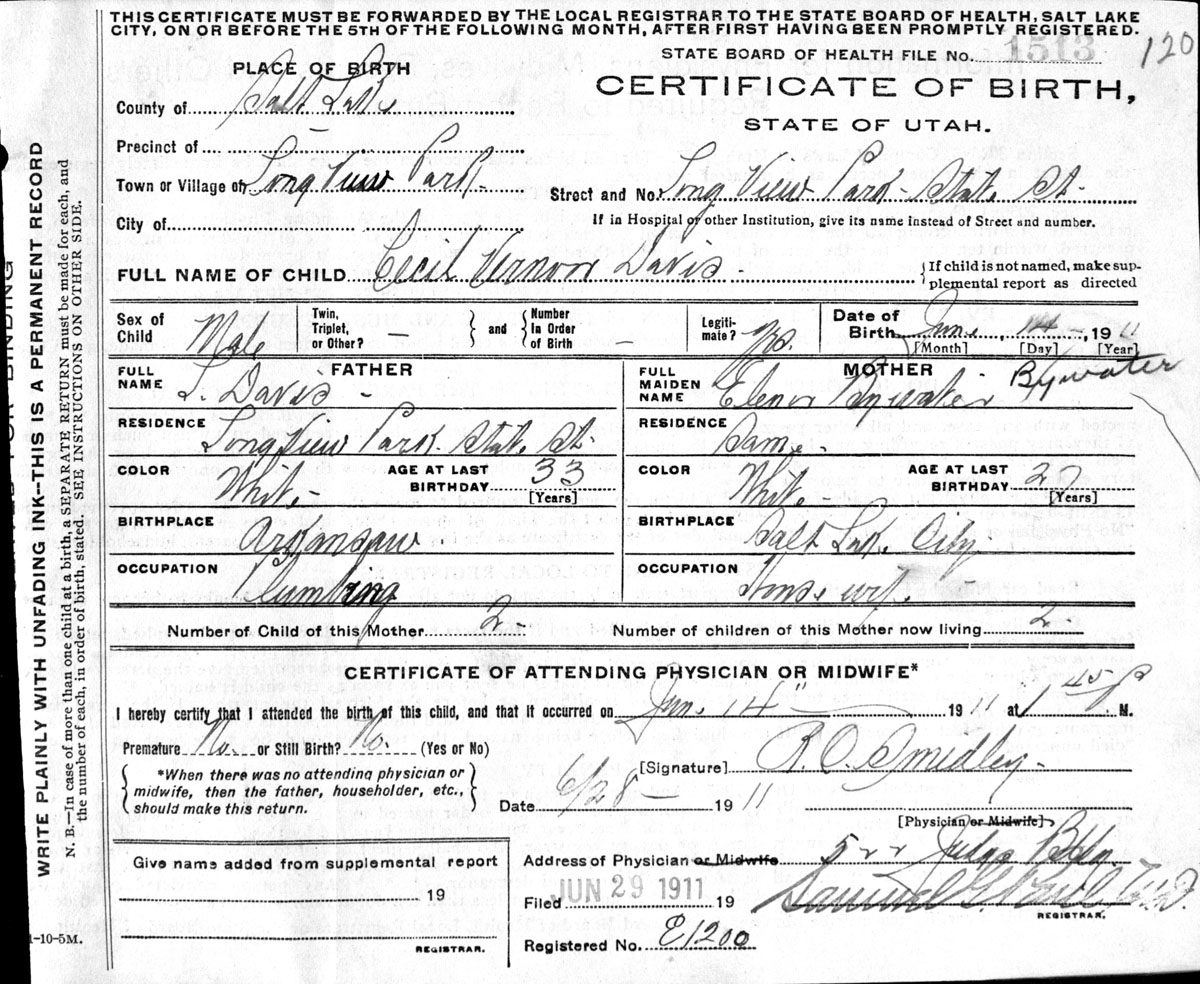 THIS CERTIFICATE MUST BE FORWARDED BY THE LOCAL REGISTRAR TO THE STATE BOARD OF HEALTH, SALT LAKE
CITY, ON OR BEFORE THE 5TH OF THE FOLLOWING MONTH, AFTER FIRST HAVING BEEN PROMPTLY REGISTERED.
STATE BOARD OF HEALTH FILE No. 1513 120
PLACE OF BIRTH
CERTIFICATE OF BIRTH,
County of Salt Lake
STATE OF UTAH.
Precinct of
Town or Village of Long View Park
Street and No. Long View Park - State St.
City of
If in Hospital or other Institution, give its name instead of Street and number.
FULL NAME OF CHILD Cecil Vernon Davis
If child is not named, make sup-
plemental report as directed
Sex of Child Male Twin, Triplet, or Other? - and Number In Order of Birth - Legiti-mate? Yes. Date of Birth June 14, 1911
[Month] [Day] [Year]
FATHER MOTHER
FULL NAME L. Davis FULL MAIDEN NAME Elenor Bywater Bywater
RESIDENCE Long View Park State St. RESIDENCE Same
COLOR White AGE AT LAST BIRTHDAY 33 [Years] COLOR White AGE AT LAST BIRTHDAY [Years]
BIRTHPLACE Arkansaw BIRTHPLACE Salt Lake City
OCCUPATION Plumbing OCCUPATION Housewife
Number of Child of this Mother 2 - Number of children of this Mother now living 2
CERTIFICATE OF ATTENDING PHYSICIAN OR MIDWIFE*
I hereby certify that I attended the birth of this child, and that it occurred on June 14" 1911 at 1 45 P M.
Premature No. or Still Birth? No. (Yes or No)
*When there was no attending physician or
midwife, then the father, householder, etc.,
should make this return.
[Signature] R. C. Smedley
Date 6/28 - 1911
[Physician or Midwife]
Give name added from supplemental report
19
REGISTRAR.
Address of Physician or Midwife 522 Judge Bldg.
Filed JUN 29 1911 19 Samuel G. Paul
REGISTRAR.
Registered No. E1200
1-10-5M.
WRITE PLAINLY WITH UNFADING INK--THIS IS A PERMANENT RECORD
N. B.—In case of more than one child at a birth, a SEPARATE RETURN must be made for each, and
the number of each, in order of birth, stated. SEE INSTRUCTIONS ON OTHER SIDE.